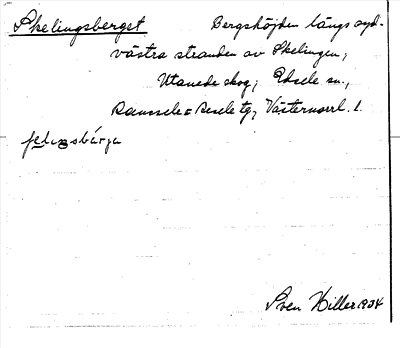 Skelingsberget Bergshöjden längs syd-
västra stranden av Skelingen,
Utanede skog, Edsele sn.,
Ramsele = Resele tg, Västernorrl. l.
Sven Hiller 1934